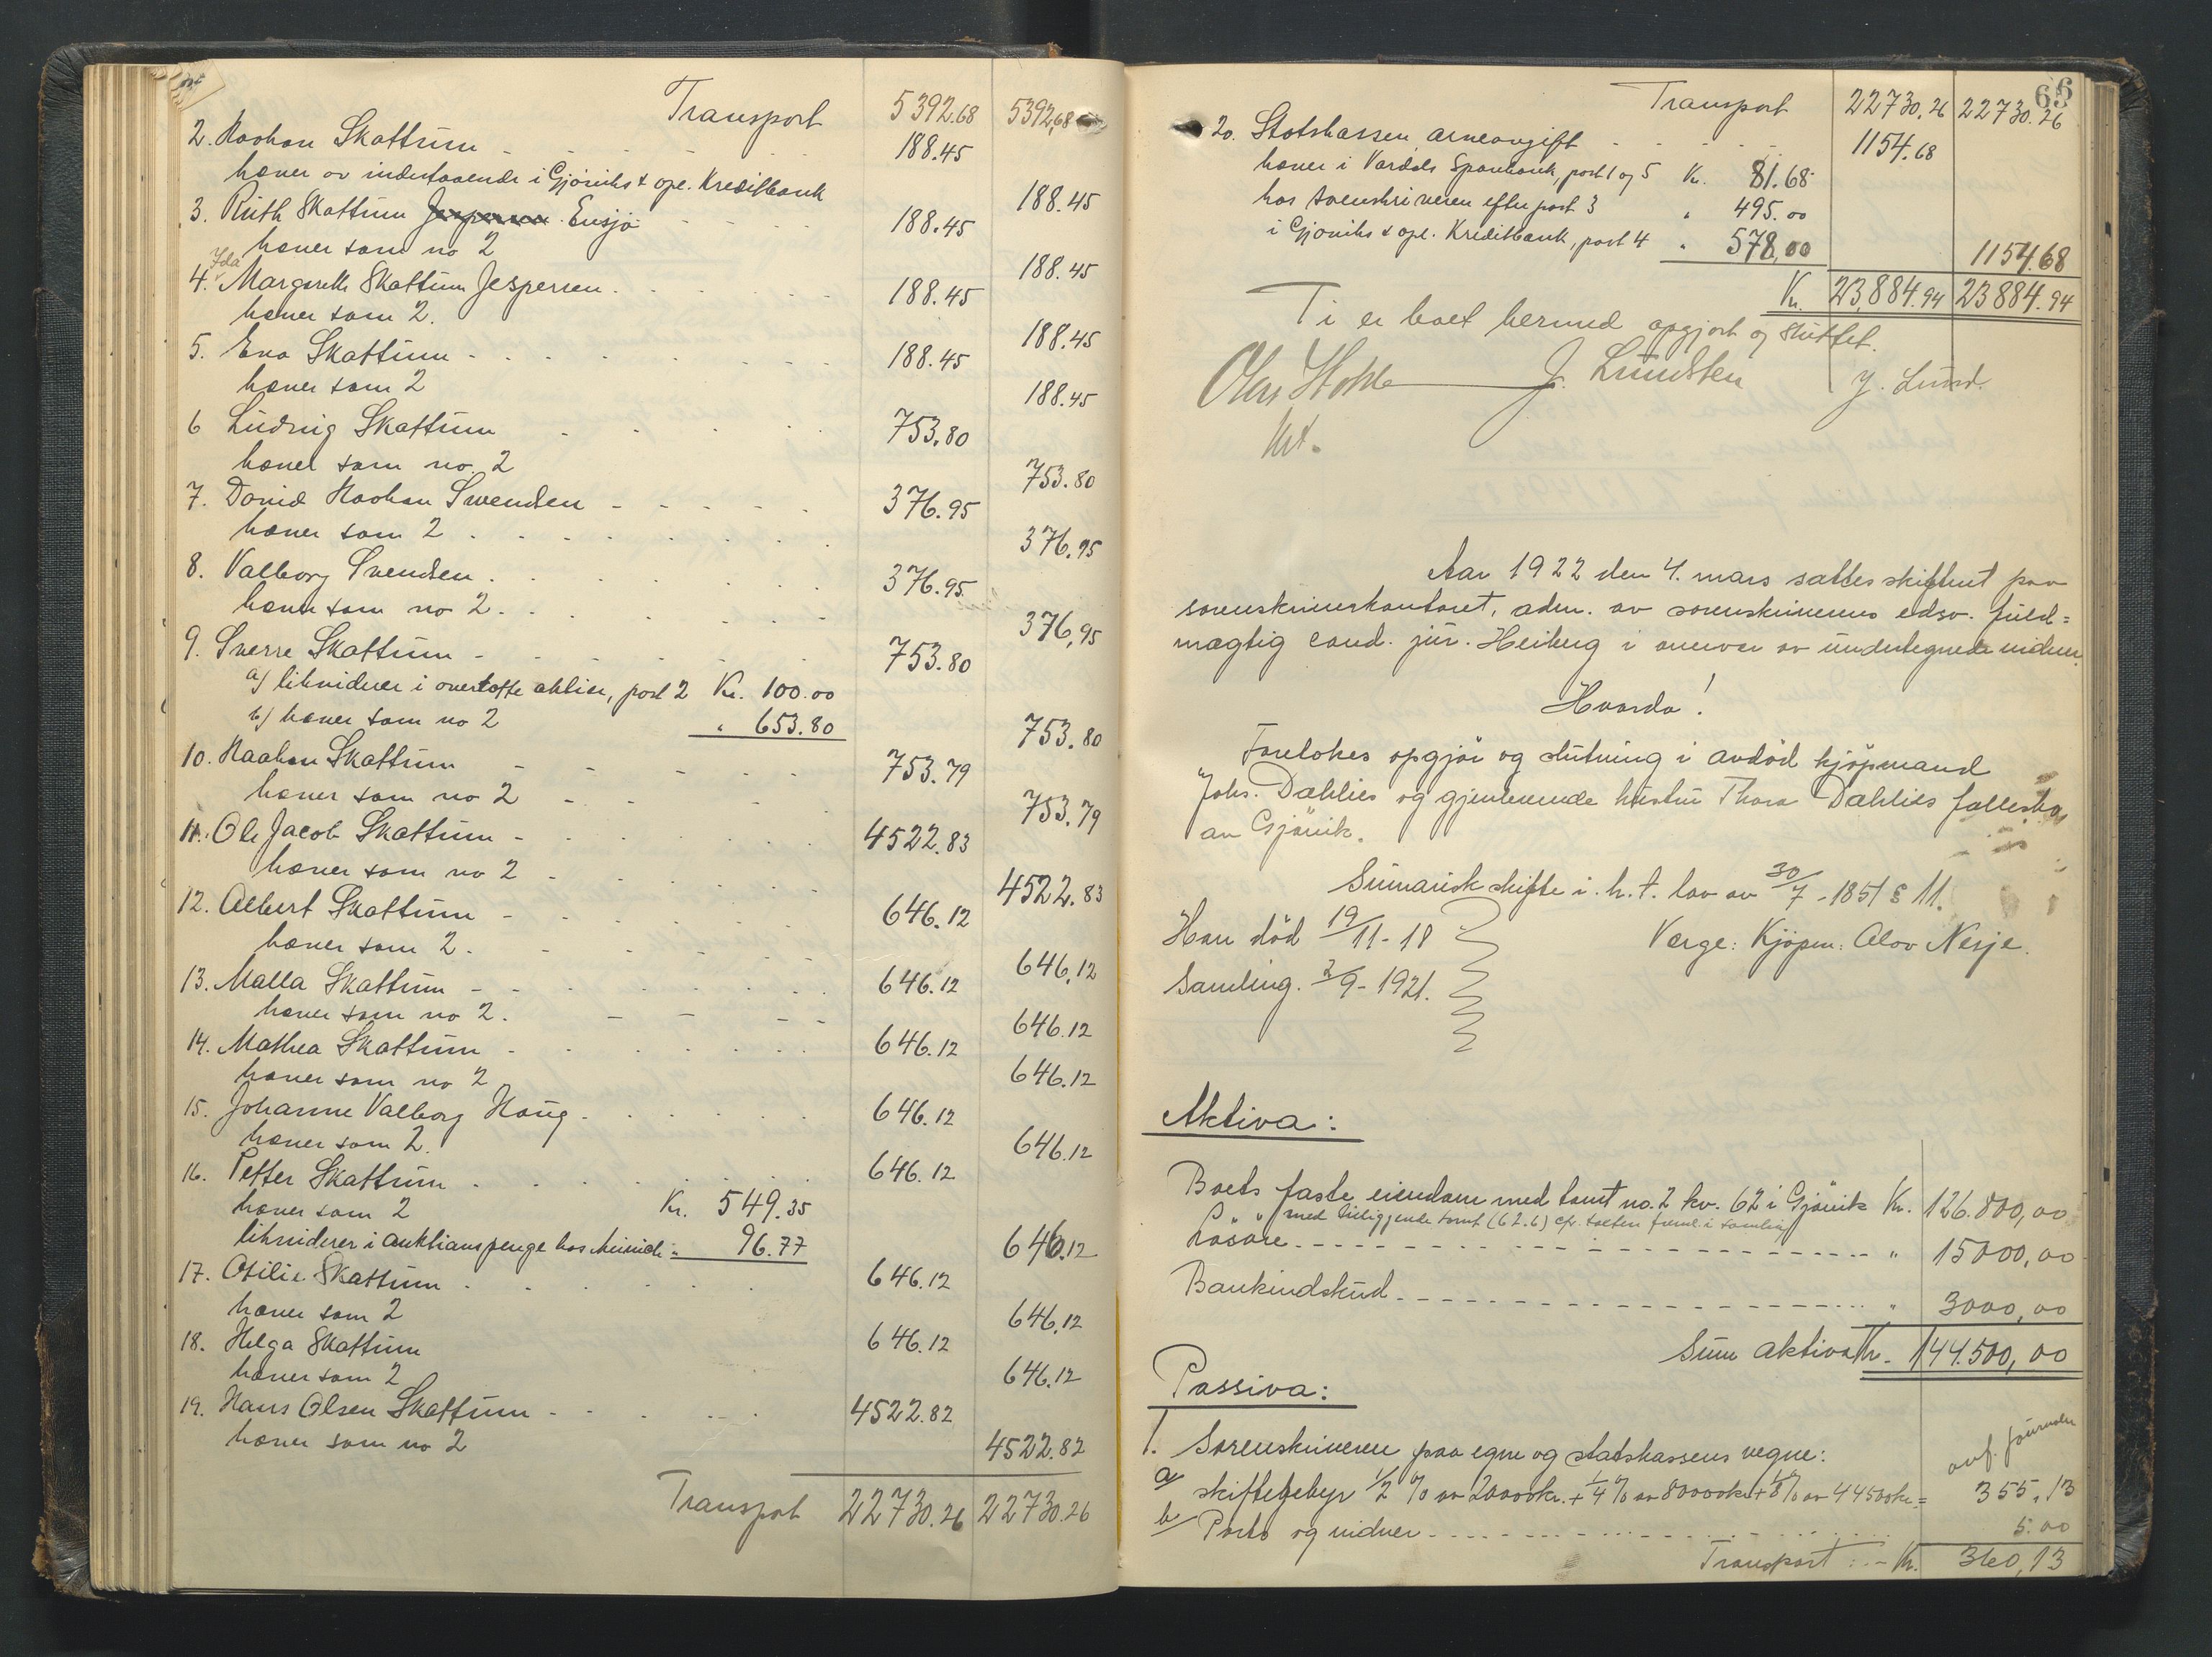 Transport 5392.68 5392,68
2. Haakon Skattum 188.45
hæver av indestaaende i Gjøviks & opl. Kreditbank 188.45
3. Ruth Skattum Jespersen Ensjø 188.45
hæver som no 2 188.45
Ida
4. Margareth Skattum Jespersen 188.45
hæver som 2. 188.45
5. Eva Skattum 188.45
hæver som 2 188.45
6 Ludvig Skattum 753.80
hæver som no. 2 753.80
7. David Haakon Svendsen 376.95
hæver som 2 376.95
8. Valborg Svendsen 376.95
hæver som no 2. 376,95
9. Sverre Skattum 753.80
a/ likviderer i overtatte aktier, post 2 Kr. 100.00
b/ hæver som no 2 " 653.80 753.80
10. Haakon Skattum 753.79
hæver som no 2 753.79
11. Ole Jacob Skattum 4522.83
hæver som no 2 4522.83
12. Albert Skattum 646.12
hæver som 2. 646,12
13. Malla Skattum 646.12
hæver som no 2. 646.12
14. Mathea Skattum 646.12
hæver som no 2 646.12
15. Johanne Valborg Haug 646.12
hæver som 2. 646.12
16. Petter Skattum 646.12
hæver som 2 Kr. 549.35
likviderer i auktionspenge hos " 96.77 646.12
17. Otilie Skattum 646.12
hæver som 2 646.12
18. Helga Skattum 646.12
hæver som 2 646.12
19. Hans Olsen Skattum 4522.82
hæver som no 2 4522.82
Transport 22730.26 22730.26
66
Transport 22730.26 22730.26
20. Statskassen, arveavgift 1154.68
hæver i Vardals Sparebank, post 1 og 5 Kr. 81.68
hos sorenskriveren efter post 3 " 495.00
i Gjøviks & opl. Kreditbank, post 4 " 578,00 1154.68
Kr. 23,884.94 23884.94
Ti er boet hermed opgjort og sluttet.
J. Lundsten J. Lund.
Aar 1922 den 4. mars sattes skifteret paa
sorenskriverkontoret, adm. av sorenskriverens edsv. fuld=
mægtig cand. jur. Heiberg i overvær av undertegnede vidner.
Hvorda!
Foretokes opgjør og slutning i avdød kjøpmand
Johs. Dæhlies og gjenlevende hustru Thora Dæhlies fællesbo
av Gjøvik.
Sumarisk skifte i. h. t. lov av 30/7-1851 § 11.
Han død 19/11-18 Verge: Kjøpm: Olav Nesje.
Samling. 2/9-1921.
Aktiva:
Boets faste eiendom med tomt no. 2 kv. 62 i Gjøvik Kr. 126.500,00
" " med tilliggende tomt (62.6) cfr. taksten freml. i samling
Løsøre " 15000,00
Bankindskud " 3000,00
Sum aktiva Kr. 144.500,00
Passiva:
1. Sorenskriveren paa egne og statskassens vegne:
a/ skiftegebyr 1/2 % av 20000 kr. + 1/4 % av 80000 kr. + 1/8 % av 44500 kr. = 355,13
b/ Porto og vidner 5.00
Transport: - Kr. 360,13